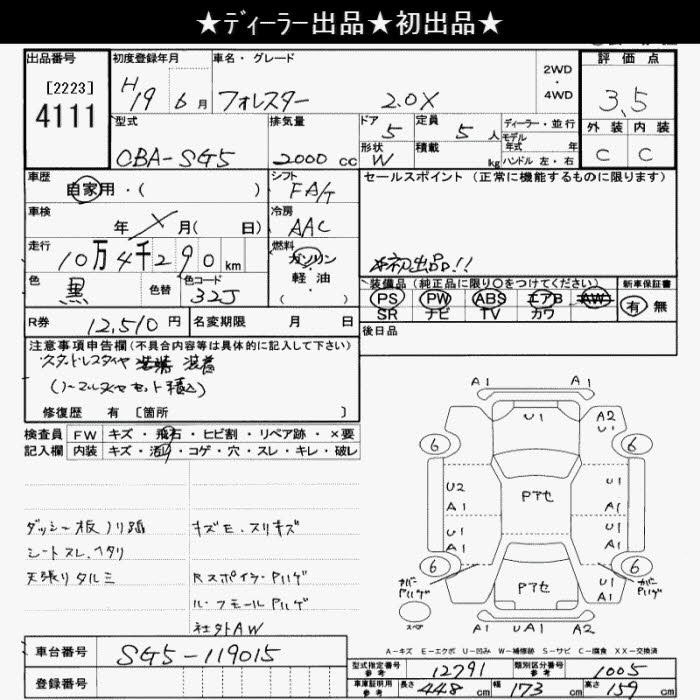 ★ディーラー出品★初出品★
出品番号 初度登録年月 車名・グレード 2WD・4WD 評価点
[2223]
4111
H19 6月 フォレスター 2.0X 3.5
型式 排気量 ドア 5 定員 5人 ディーラー・並行 外装 内装
CBA-SG5 2000cc 形状 W 積載 kg モデル年式 年 C C
ハンドル 左・右
車歴 シフト セールスポイント（正常に機能するものに限ります）
自家用・( ) FA/T
車検 冷房
年 月( 日) AAC
走行 燃料
10万4千290km ガソリン・軽油
( ・ )
※初出品!!
色 色替 色コード 装備品（純正品に限り○をつけてください） 新車保証書
黒 32J PS PW ABS エアB AW 有 無
SR ナビ TV カワ
R券 12,510円 名変期限 月 日 後日品
注意事項申告欄（不具合内容等は具体的に記入して下さい）
スタッドレスタイヤ 装着
(ノーマルタイヤセット積込)
修復歴 有 [箇所 ]
検査員 FW キズ・飛石・ヒビ割・リペア跡・×要
記入欄 内装 キズ・汚れ・コゲ・穴・スレ・キレ・破レ
ダッシー板ノリ跡 キズモ.スリキズ
シートスレ.ヘタリ
天張りタルミ RスポイラーPハゲ
ルーフモールPハゲ
社外AW
A1 A1
U1 A2
U1
6 6
U2 U1
A1 Pアセ A1
U1 U1
A1 A1
6 6
カバーPハゲ Pアセ U1 カバーPハゲ
A1
スペア
A1 UA1 A2
A-キズ E-エクボ U-凹み W-補修跡 S-サビ C-腐食 XX-交換済
車台番号 SG5-119015
登録番号
型式指定番号 参考 12791 類別区分番号 参考 1005
車庫証明用 参考 長さ 448cm 幅 173cm 高さ 159cm